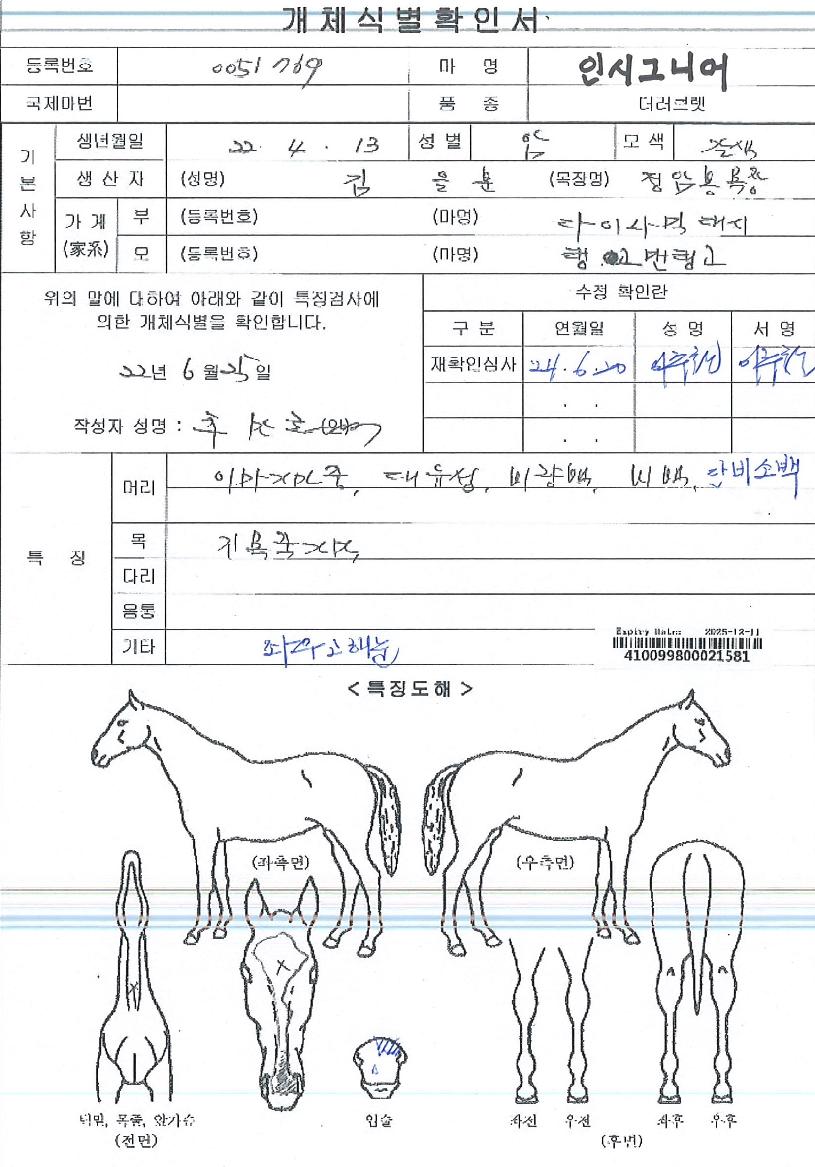 개체식별확인서
등록번호 0051769 마 명 인시그니어
국제마번 품 종 더러브렛
기본사항
생년월일 22. 4. 13 성별 암 모색 갈색
생산자 (성명) 김 을 (목장명)
가계 (家系) 부 (등록번호) (마명)
모 (등록번호) (마명)
위의 말에 대하여 아래와 같이 특징검사에
의한 개체식별을 확인합니다.
22년 6월 25일
작성자 성명 :
수정 확인란
구 분 연월일 성 명 서 명
재확인심사 24. 6. 20
. .
. .
특 징
머리 대유성, 비량백, 비백, 단비소백
목
다리
몸통
기타
Expiry Date: 2025-12-11
410099800021581
< 특징도해 >
(좌측면) (우측면)
턱밑, 목줄, 앞가슴
(전면)
입술
좌전 우전 좌후 우후
(후면)